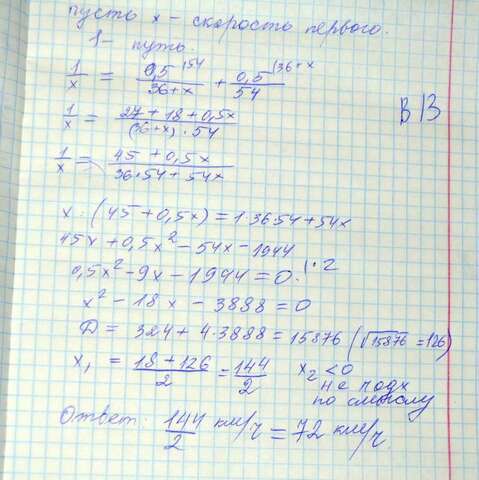 пусть x - скорость первого.
1- путь
1/x = 0,5 |54 / 36+x + 0,5 |36+x / 54
1/x = 27 + 18 + 0,5x / (36+x) · 54
В13
1/x = 45 + 0,5x / 36·54 + 54x
x · (45 + 0,5x) = 1·3654+54x
45x + 0,5x² - 54x - 1944
0,5x² - 9x - 1944 = 0 |·2
x² - 18x - 3888 = 0
D = 324 + 4·3888 = 15876 (√15876 = 126)
x₁ = 18 + 126 / 2 = 144 / 2 x₂ < 0
не подх
по смыслу
Ответ: 144 / 2 км/ч = 72 км/ч.